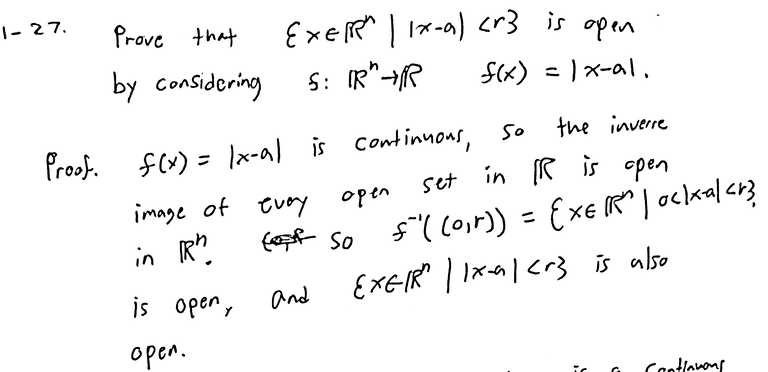 1-27. Prove that {x∈ℝⁿ | |x-a| <r} is open
by considering f: ℝⁿ→ℝ f(x) = |x-a|.
Proof. f(x) = |x-a| is continuous, so the inverse
image of every open set in ℝ is open
in ℝⁿ. So f⁻¹((0,r)) = {x∈ℝⁿ | 0<|x-a|<r}
is open, and {x∈ℝⁿ | |x-a| <r} is also
open.
is a continuous